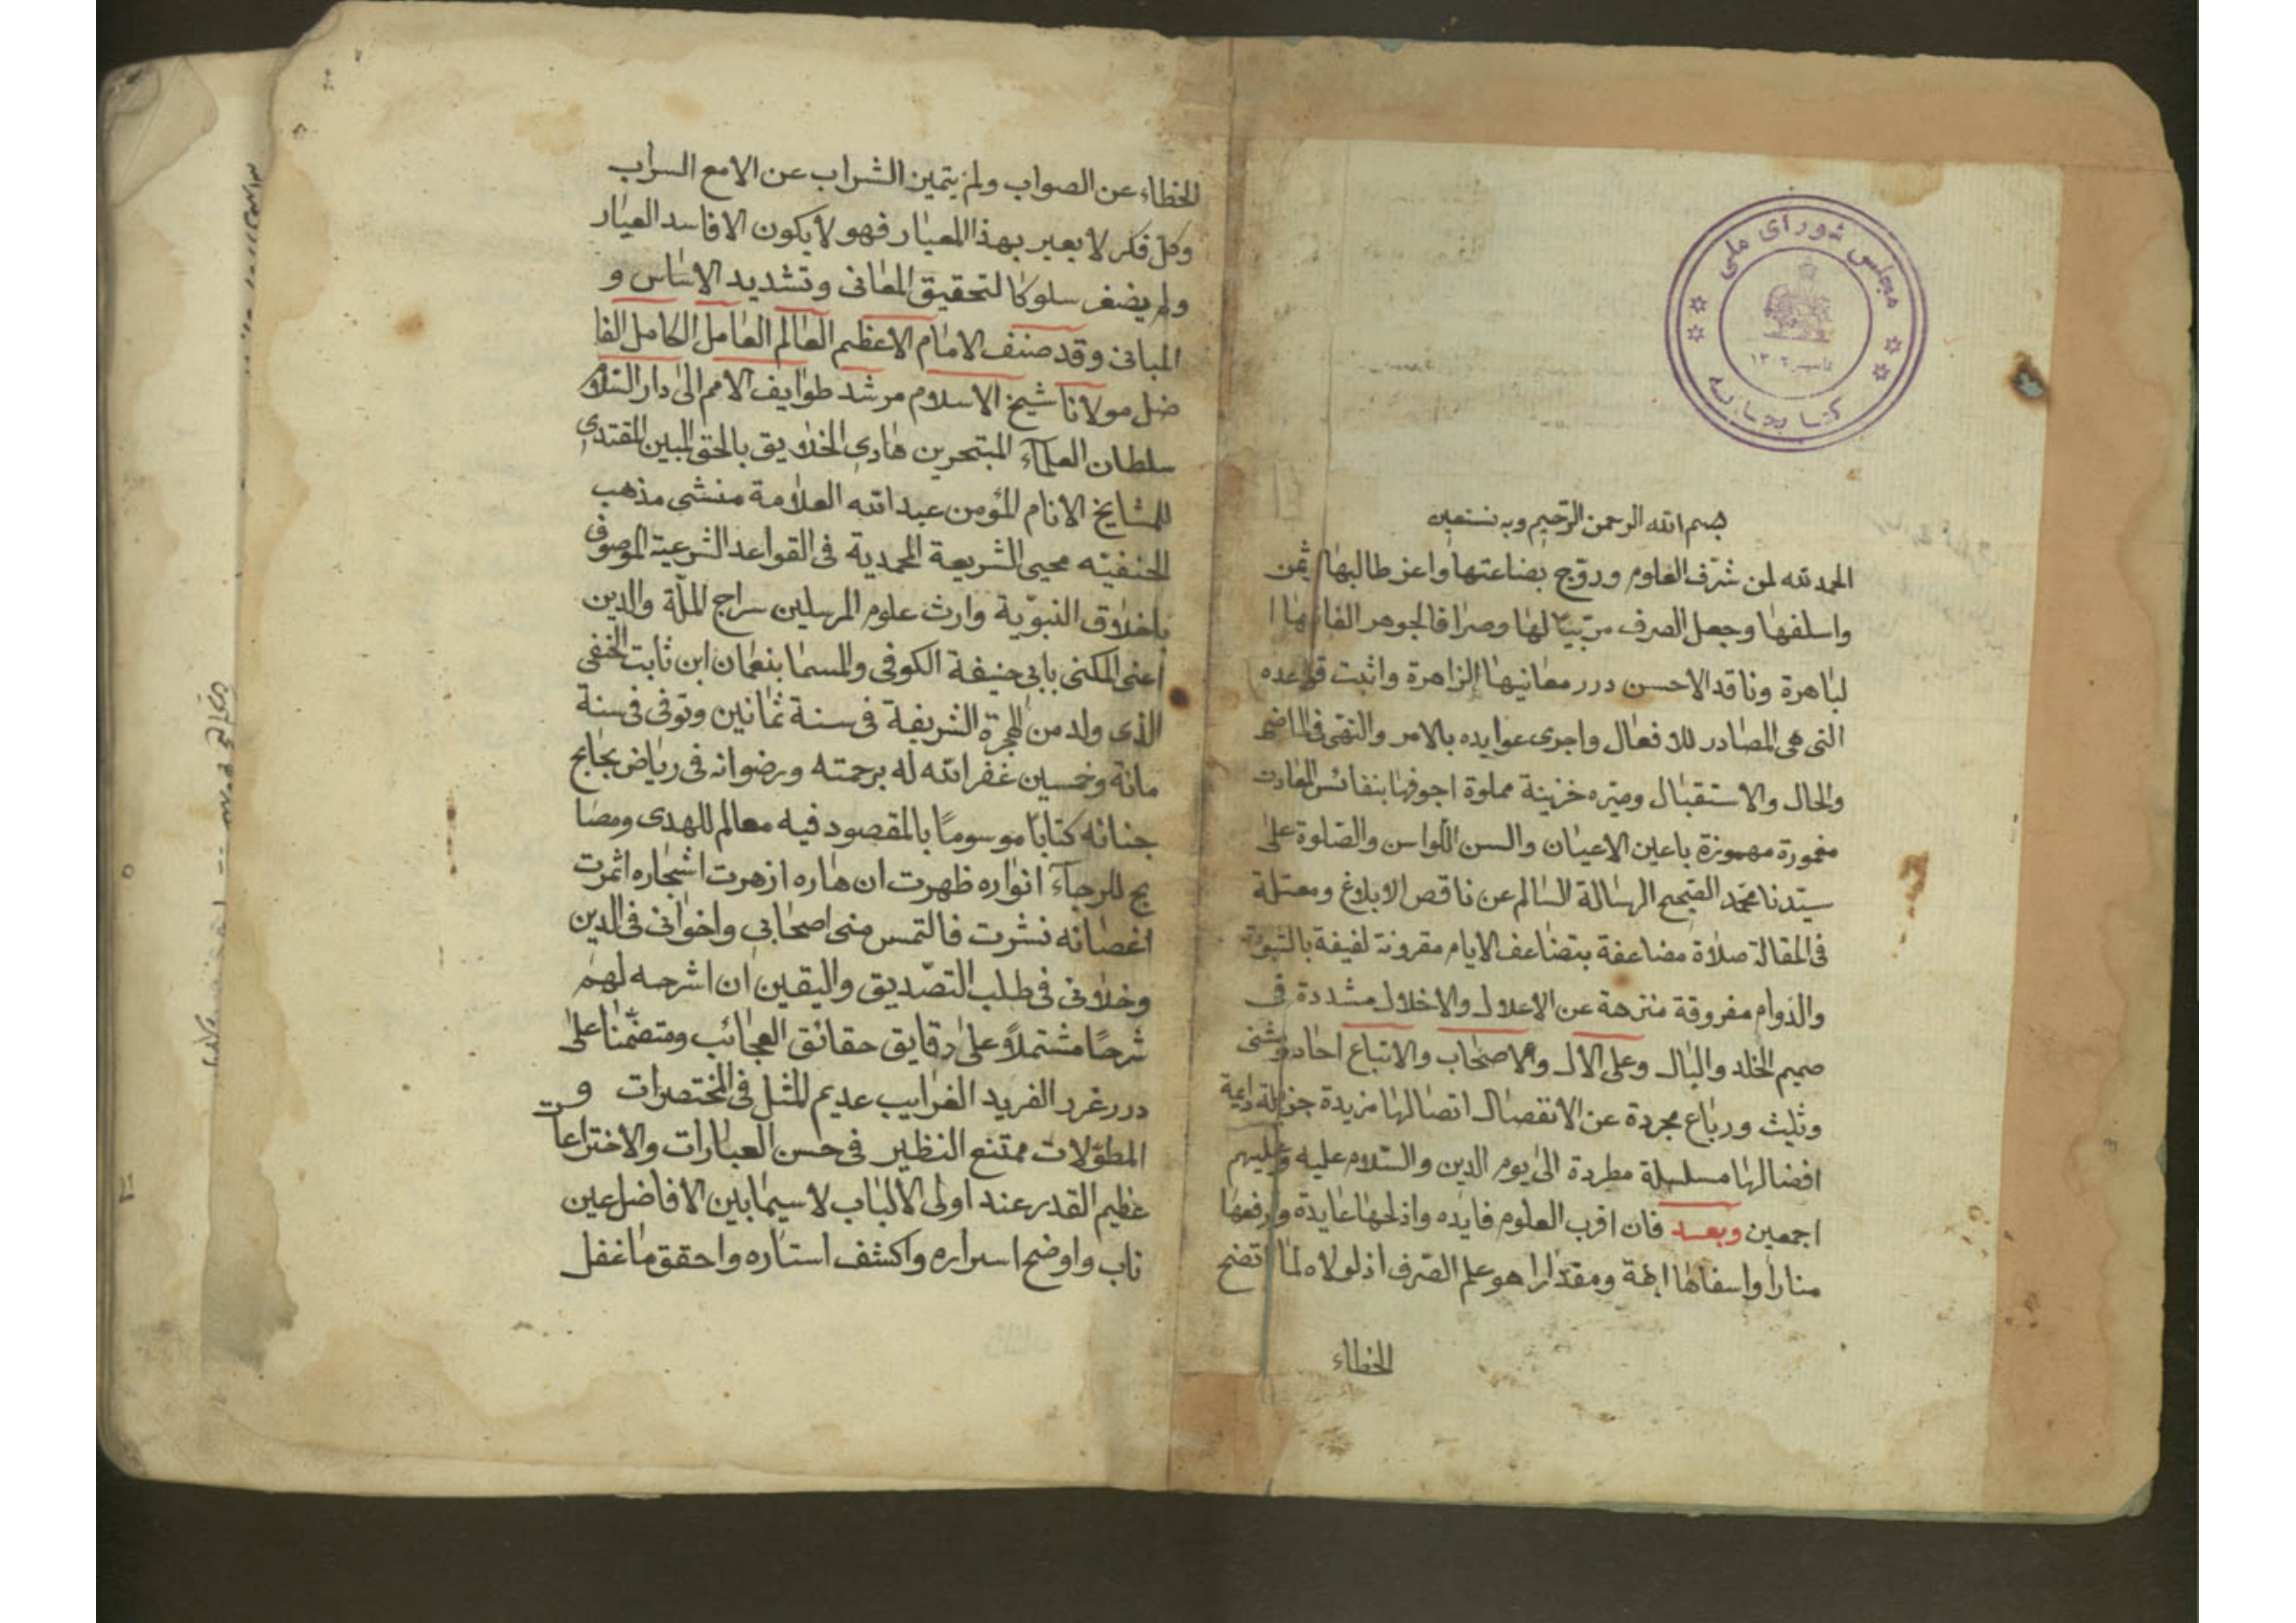 مجلس شورای ملی
تاسیس ۱۳۰۲
کتابخانه
بسم الله الرحمن الرّحیم وبه نستعین
الحمد لله لمن شرّف العلوم وروّج بضاعتها واعز طالبها ثمن
واسلفها وجعل الصرف مرتبيًا لها وصرافا لجوهر الفاظها ا
لباهرة وناقد الاحسن درر معانيها الزاهرة واثبت قواعده
التى هى المصادر للافعال واجرى عوايده بالامر والنهى فى الماضى
والحال والاستقبال وصيّره خزينة مملوة اجوفها بنفائس العادت
مغمورة مهموزة باعين الاعيان والسن اللواس والصّلوة على
سيّدنا محمّد الصّحيح الرسالة السالم عن ناقص الابلاغ ومعتلة
فى المقالة صلاة مضاعفة بتضاعف الايام مقرونة لفيفة بالنبوة
والدّوام مفروقة منزهة عن الاعلال والاخلال مشددة فى
صميم الخلد والبال وعلى الال والاصحاب والاتباع احاد ومثنى
وثليث ورباع مجردة عن الانفصال اتصالها مزيدة جزيلة داعية
افضالها مسلسلة مطردة الى يوم الدين والسّلام عليه وعليهم
اجمعين وبعد فان اقرب العلوم فايده واذلحها عايدة وارفعها
منارا واسفاها ابهة ومقدارا هو علم الصّرف اذ لولاه لما اتضح
الخطاء
الخطاء عن الصواب ولم يتميز الشراب عن الامع السراب
وكل فكر لا يعير بهذا المعيار فهو لا يكون الا فاسد العيار
ولم يضفر سلوكا لتحقيق المعانى وتشديد الاساس و
المبانى وقد صنف الامام الاعظم العالم العامل الكامل الفا
ضل مولانا شيخ الاسلام مرشد طوايف الامم الى دار السّلام
سلطان العلماء المبتحرين هادى الخلايق بالحق المبين المقتدى
للمشايخ الانام المؤمن عبد الله العلامة منشى مذهب
الحنفيّه محيى الشريعة المحمدية فى القواعد الشرعية الموصوف
باخلاق النبوّية وارث علوم المرسلين سراج الملّة والدين
اعنى المكنى بابى حنيفة الكوفى والمسما بنعمان ابن ثابت الحنفى
الذى ولد من الهجرة الشريفة فى سنة ثمانين وتوفى فى سنة
مائة وخمسين غفر الله له برحمته ورضوانه فى رياض بجابح
جنانه كتابا موسومًا بالمقصود فيه معالم للهدى ومصا
بح للرجاء انواره ظهرت ان هاره ازهرت اشجاره اثمرت
اغصانه نشرت فالتمس منى اصحابى واخوانى فى الدين
وخلانى فى طلب التصّديق واليقين ان اشرحه لهم
شرحًا مشتملاً على دقايق حقائق العجائب ومتضمّنا على
درر غرر الفريد الغرايب عديم المثل فى المختصرات و
المطوّلات ممتنع النظير فى حسن العبارات والاختراعات
عظيم القدر عند اولى الالباب لا سيما بين الافاضل عين
ناب واوضح اسراره واكشف استاره واحقق ما غفل